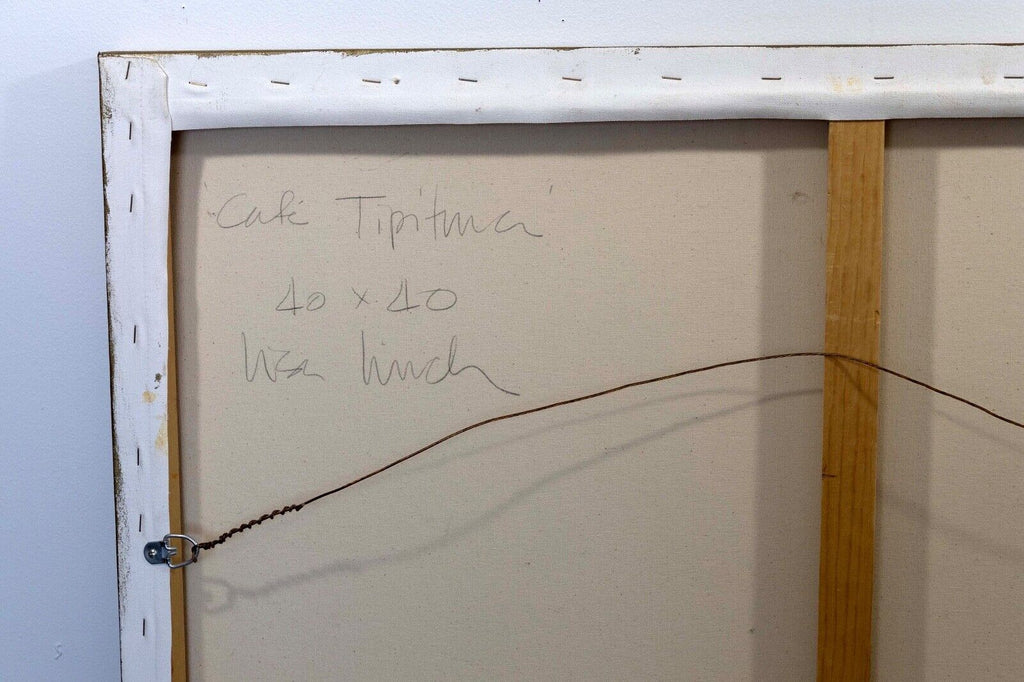 'Café Tipitina'
40 x 40
Lisa